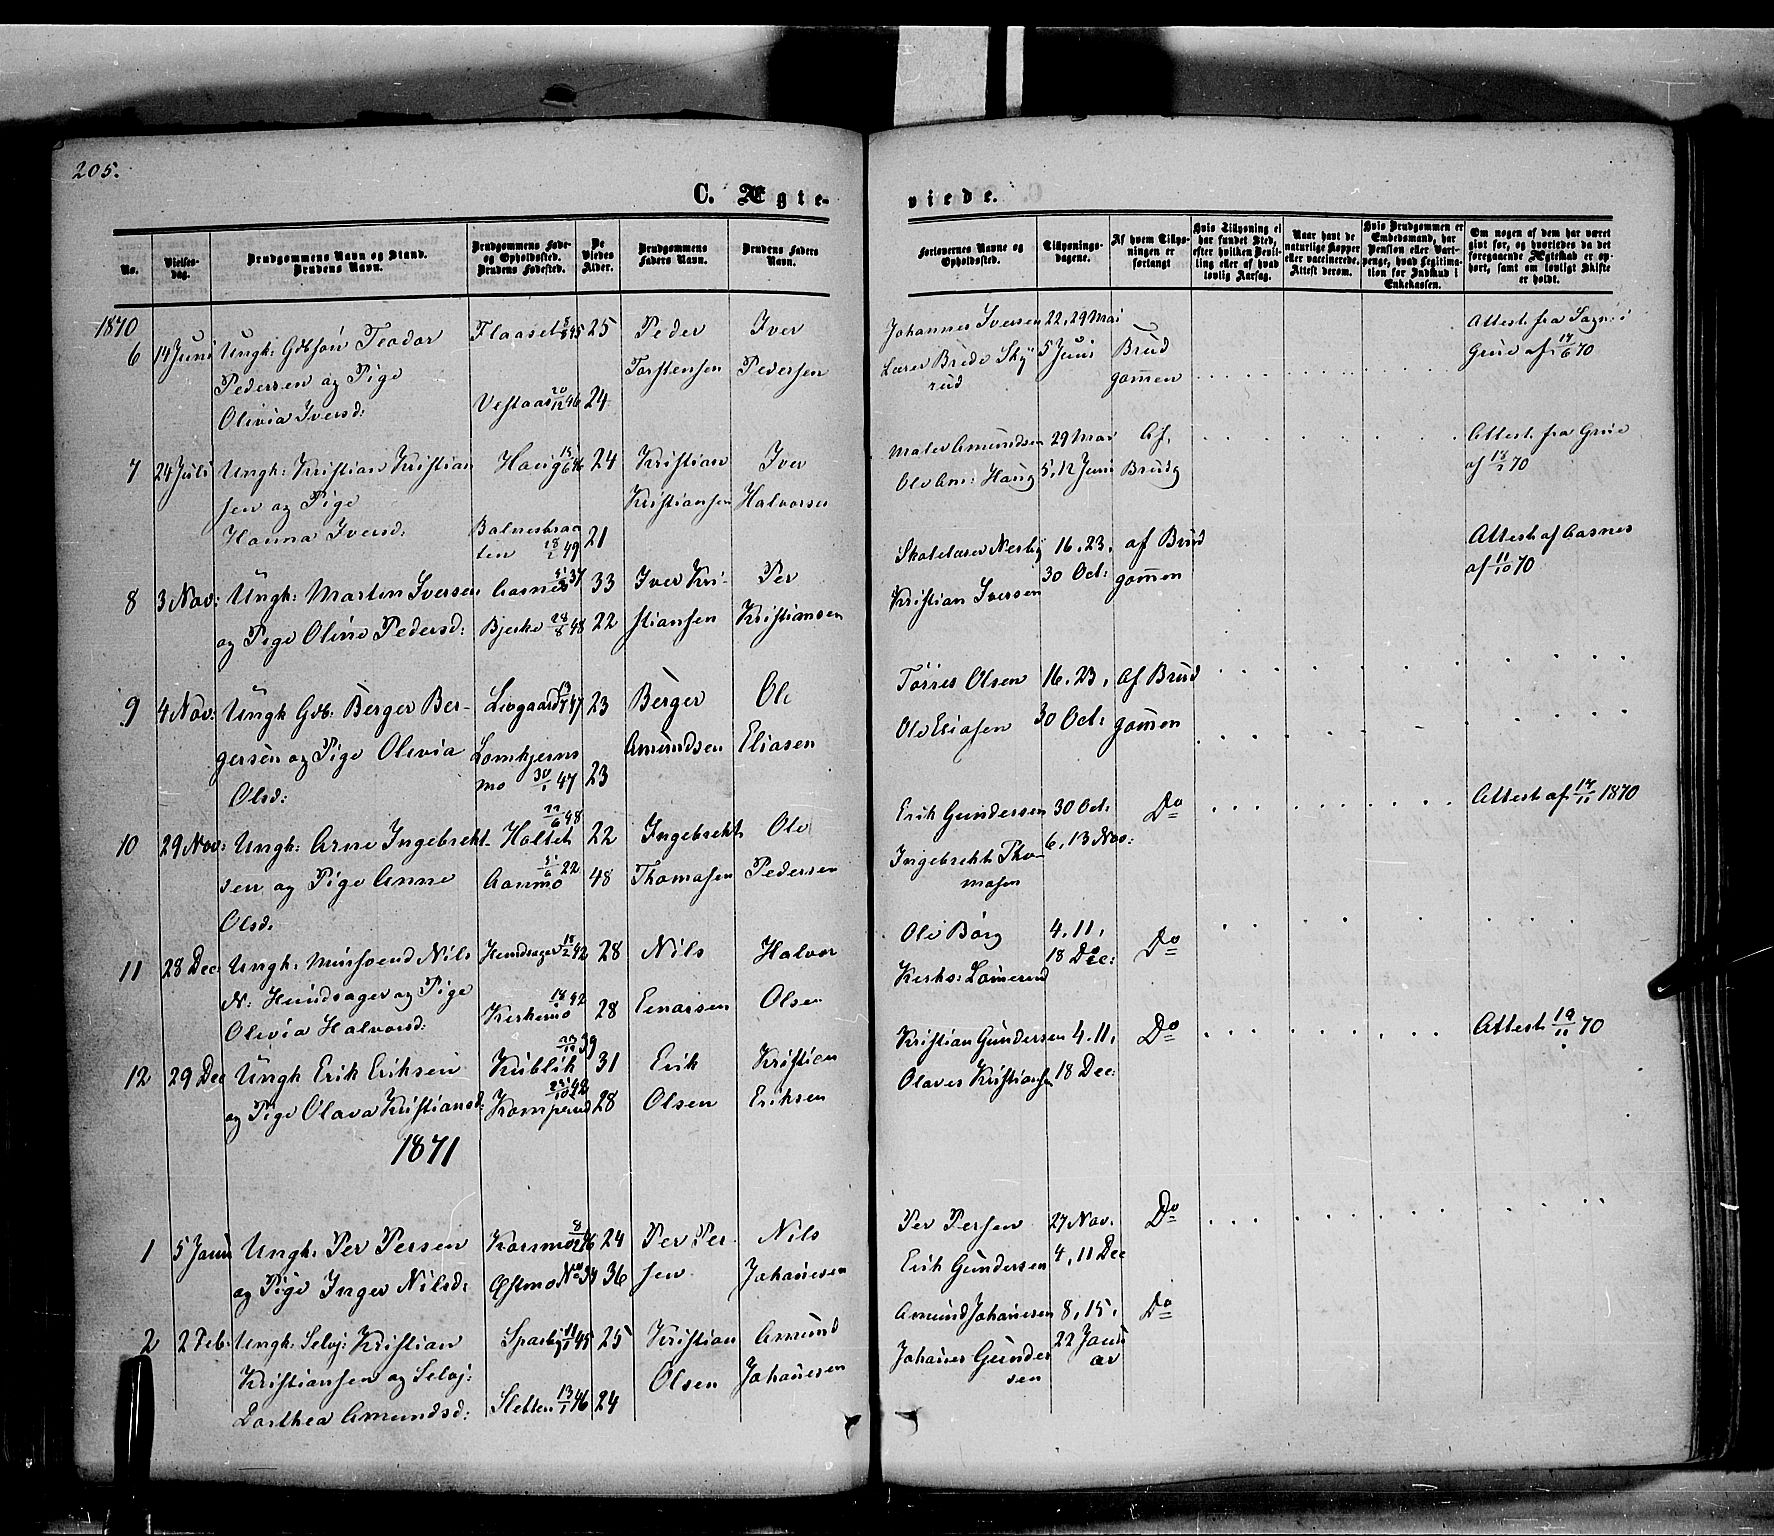 205.
C. Ægte-
viede.
No.
Vielses-
dag.
Brudgommens Navn og Stand.
Brudens Navn.
Brudgommens Føde-
og Opholdssted.
Brudens Fødested.
De
Viedes
Alder.
Brudgommens
Faders Navn.
Brudens Faders
Navn.
Forlovernes Navne og
Opholdssted.
Tillysnings-
dagene.
Af hvem Tillys-
ningen er
forlangt
Hvis Tillysning ei
har fundet Sted,
efter hvilken Bevil-
ling eller af hvad
lovlig Aarsag.
Naar havt de
naturlige Kopper
eller vaccinerede.
Attest derom.
Hvis Brudgommen er
Embedsmand, har
Pension eller Vart-
penge, hvad Legitima-
tion for Indskud i
Enkekassen.
Om nogen af dem har været
gift før, og hvorledes da det
foregaaende Ægteskab er op-
hørt, samt om lovligt Skifte
er holdt.
1870
6 14 Juni Ungk: Gdbsøn Teodor Flaaset 5/8 45 25 Peder Iver
Pedersen og Pige Torstensen Pedersen
Olivia Iversd: Vestaas 20/12 46 24
Johannes Iversen 22, 29 Mai
Lærer Brede Sky 5 Juni Brud
rud gommen
Attest fra Sogn: i
Grue af 14/6 70
7 24 Juli Ungk: Kristian Kristian Haug 15/6 46 24 Kristian Iver
sen og Pige Kristiansen Halvorsen
Hanna Iversd: Balnesbraa
ten 18/2 49 21
Maler Amundsen 29 Mai Af,
Ole Am: Haug 5, 12 Juni Brudg
Attest fra Grue
af 18/7 70
8 3 Nov: Ungk: Marten Iversen Aasnes 37 33 Iver Kri- Per
og Pige Oline Pedersd: Bjerke 28/8 48 22 stiansen Kristiansen
Skolelærer Nesby 16. 23, af Brud
Kristian Iversen 30 Oct: gommen
Attest af Aasnes
af 11/10 70
9 4 Nov: Ungk Gdb: Berger Ber- Lievgaard 47 23 Berger Ole
gersen og Pige Olivia Lomkjerns Amundsen Eliasen
Olsd: mo 30/1 47 23
Tørres Olsen 16. 23, af Brud
Ole Eliasen 30 Oct: gommen
10 29 Nov: Ungk: Arne Ingebrekt- Holtet 22/6 48 22 Ingebrekt Ole
sen og Pige Anne Aanmo 22 48 Thomasen Pedersen
Olsd:
Erik Gundersen 30 Oct: Do
Ingebrekt Tho- 6, 13 Nov:
masen
Attest af 14/11 1870
11 28 Dec: Ungk: Nils Hundsager 15/2 42 28 Nils Halvor
N: Hundsager og Pige Einarsen Olsen
Olivia Halvorsd: Kerkemo 18 42 28
Ole Børg 4, 11, Do
Kerks: Lomerud 18 Dec:
12 29 Dec Ungk Erik Eriksen Kublik 39 31 Erik Kristian
og Pige Olava Kristiansd: Komperud 42 28 Olsen Eriksen
Kristian Gundersen 4. 11, Do
Olaves Kristiansen 18 Dec:
Attest 19/11 70
1871
1 5 Janu Ungk: Per Persen Korsmo 8/2 46 24 Per Per- Nils
og Pige Inger Nilsd: Østmo 34 36 sen Johansen
Per Persen 27 Nov. Do
Erik Gundersen 4, 11 Dec
2 2 Feb: Ungk: Selvj: Kristian Sparby 11/1 45 25 Kristian Amund
Kristiansen og Selvj: Olsen Johannesen
Dorthea Amundsd: Sletten 13/1 46 24
Amund Johannesen 8, 15, Do
Johannes Gunder 22 Janu
sen ar